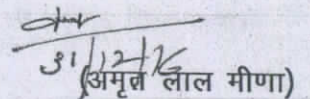 31/12/15
(अमृत लाल मीणा)